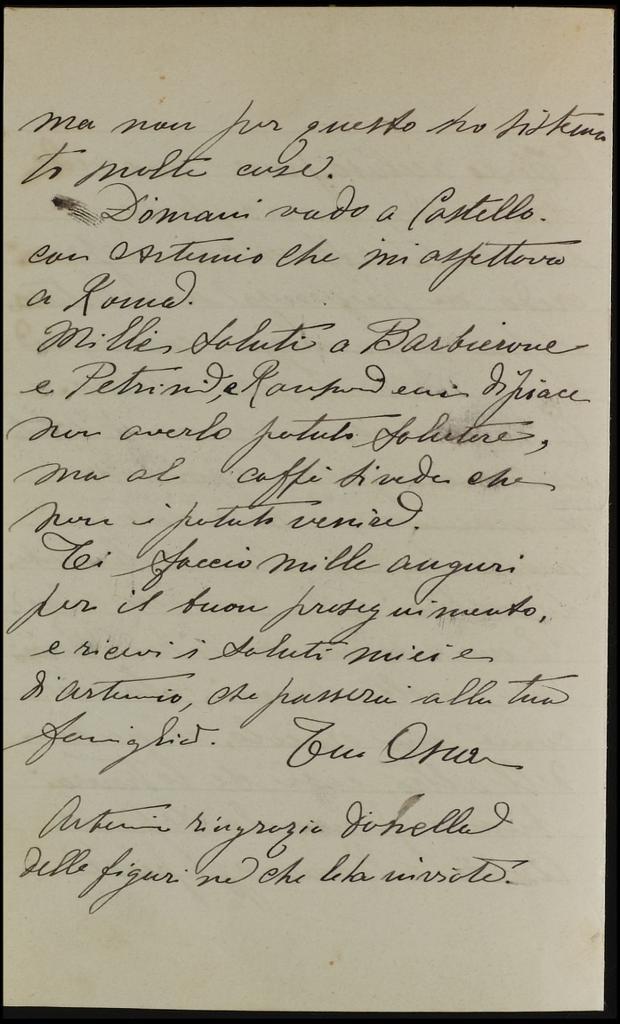 ma non per questo ho sistema
to molte cose.
Domani vado a Castello.
con Artemio che mi aspettava
a Roma.
Mille saluti a Barbierone
e Petrini, e mi dispiace
non averlo potuto salutare,
ma al caffè si vede che
non è potuto venire.
Ti faccio mille auguri
per il buon proseguimento,
e ricevi i saluti miei e
di Artemio, che passerai alla tua
famiglia. Tuo Oscar
Artemio ringrazia
delle figurine che le ha inviate.